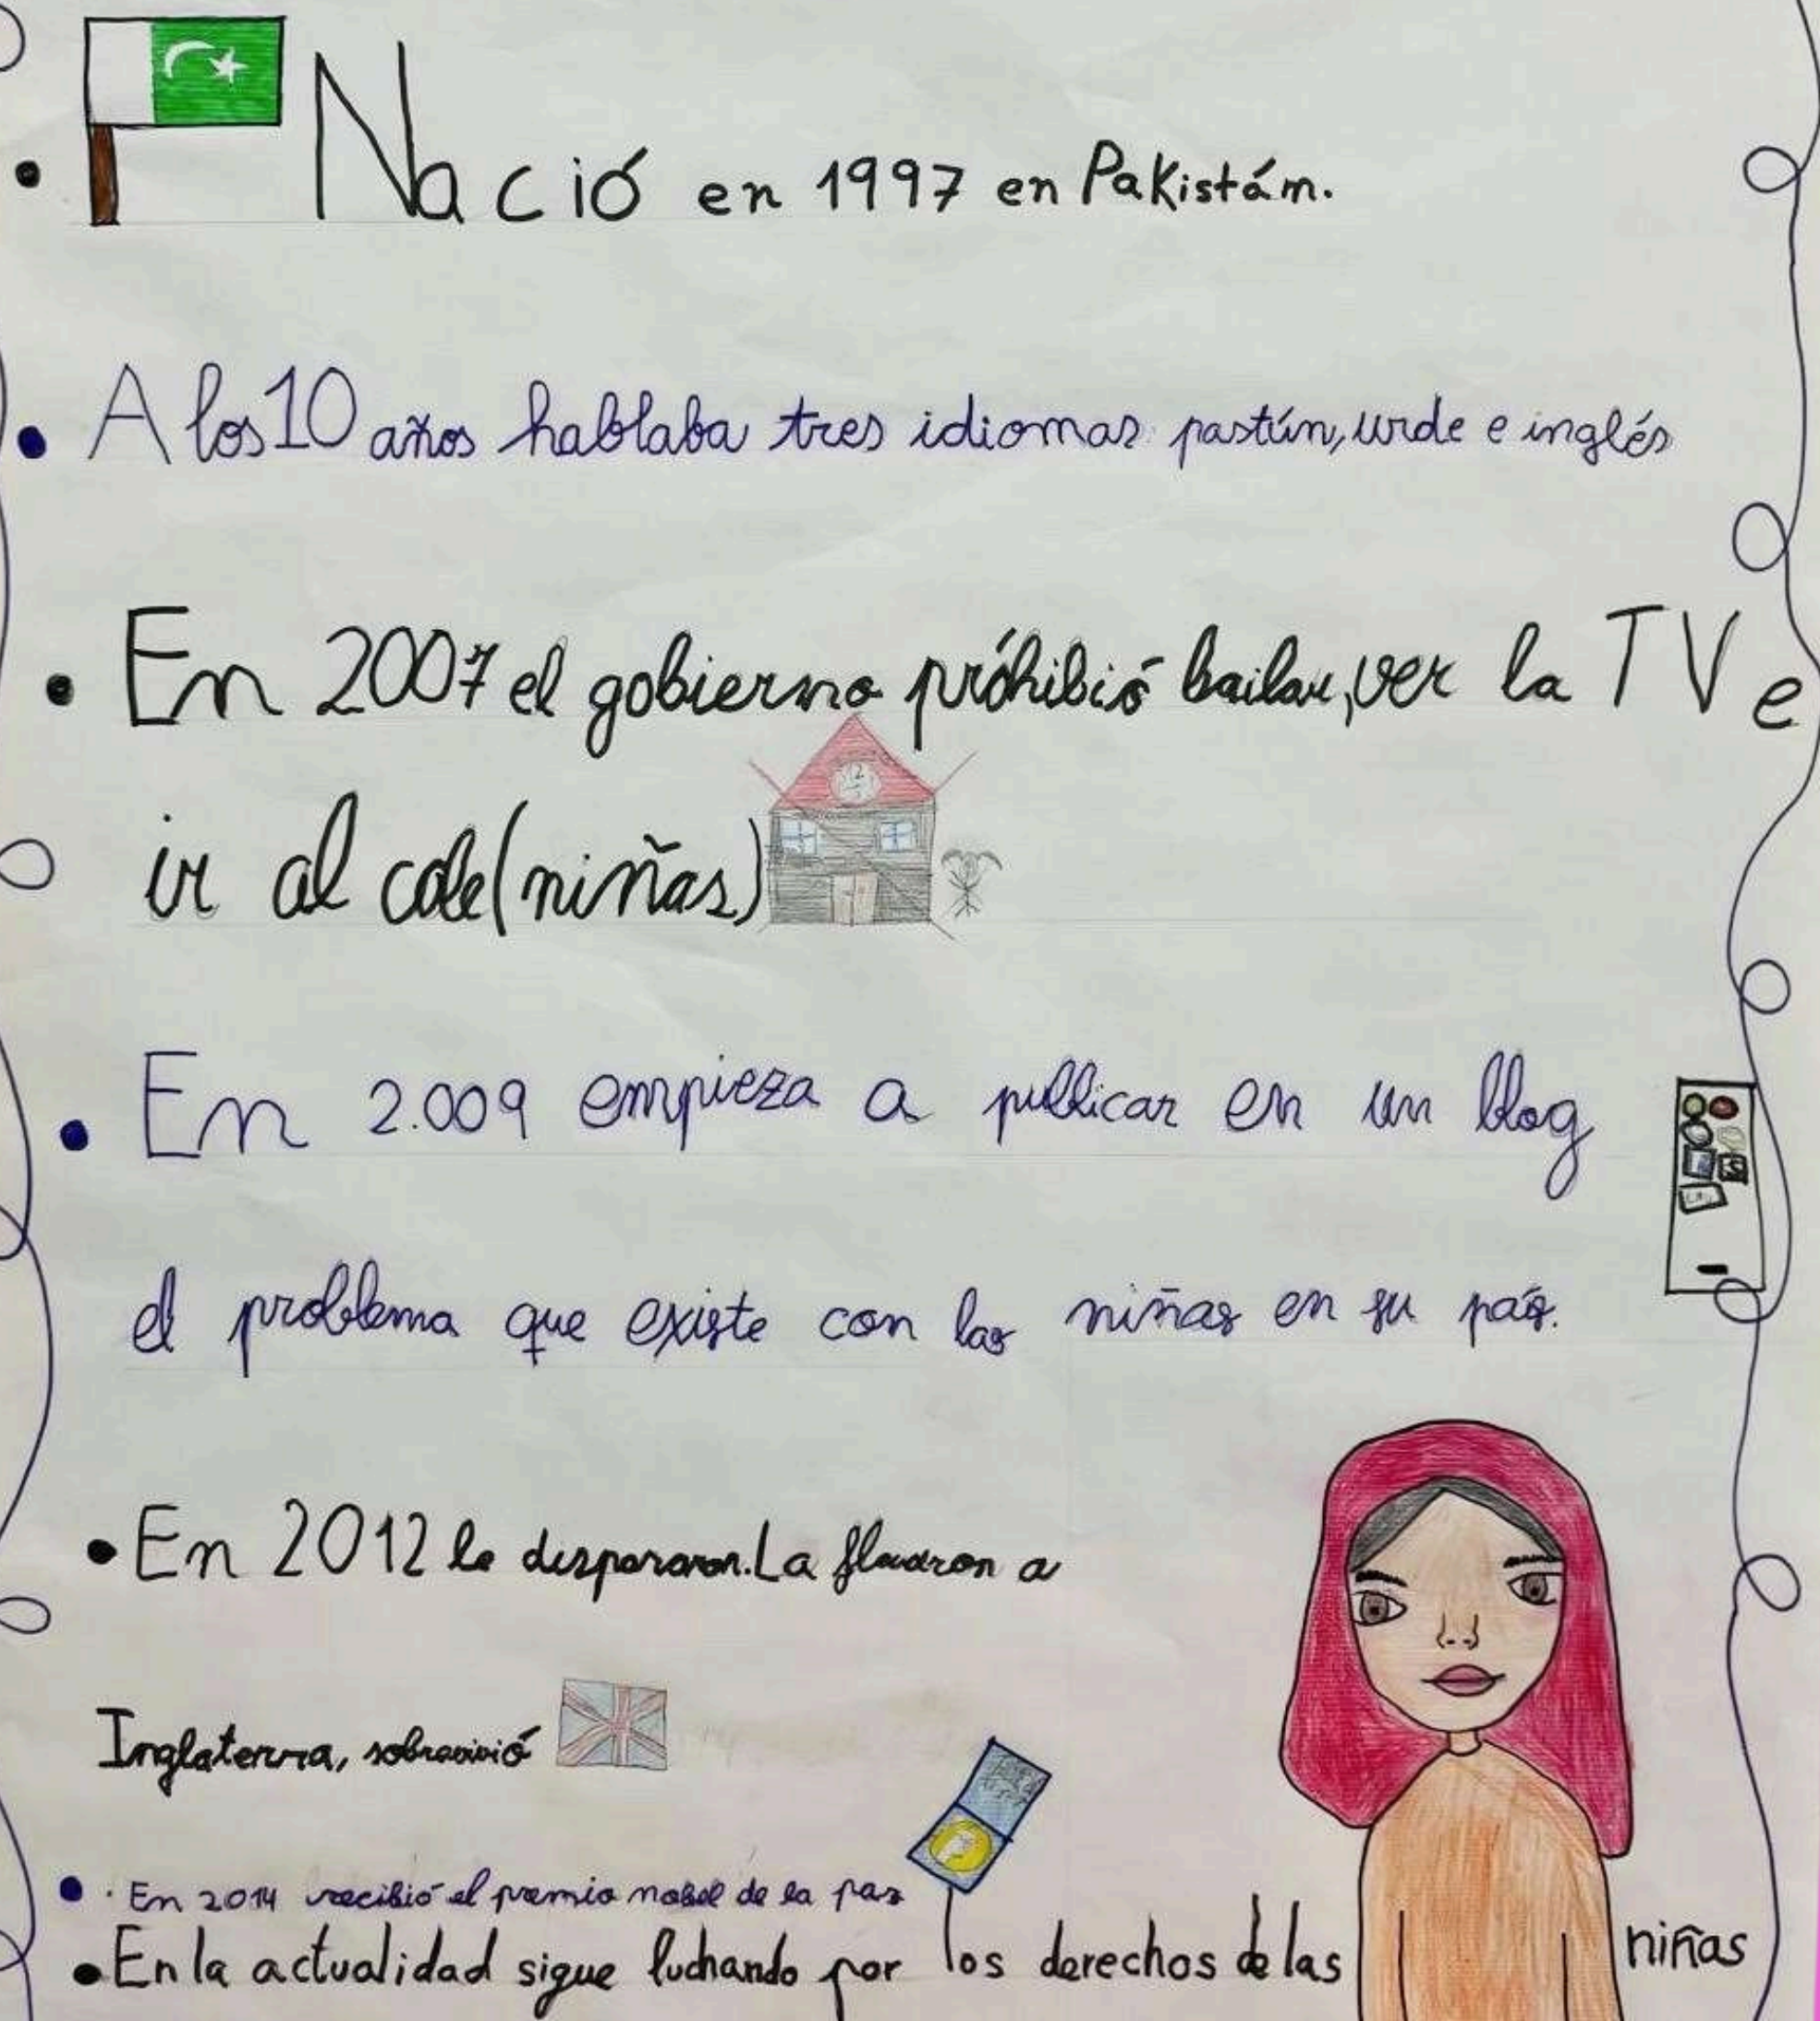 Nació en 1997 en Pakistám.
A los 10 años hablaba tres idiomas pastún, urde e inglés
En 2007 el gobierno próhibió bailar, ver la TV e
ir al cole (niñas)
En 2.009 empieza a publicar en un blog
el problema que existe con las niñas en su país.
En 2012 le dispararon. La llevaron a
Inglaterra, sobrevivió
En 2014 recibió el premio nobel de la paz
En la actualidad sigue luchando por los derechos de las niñas